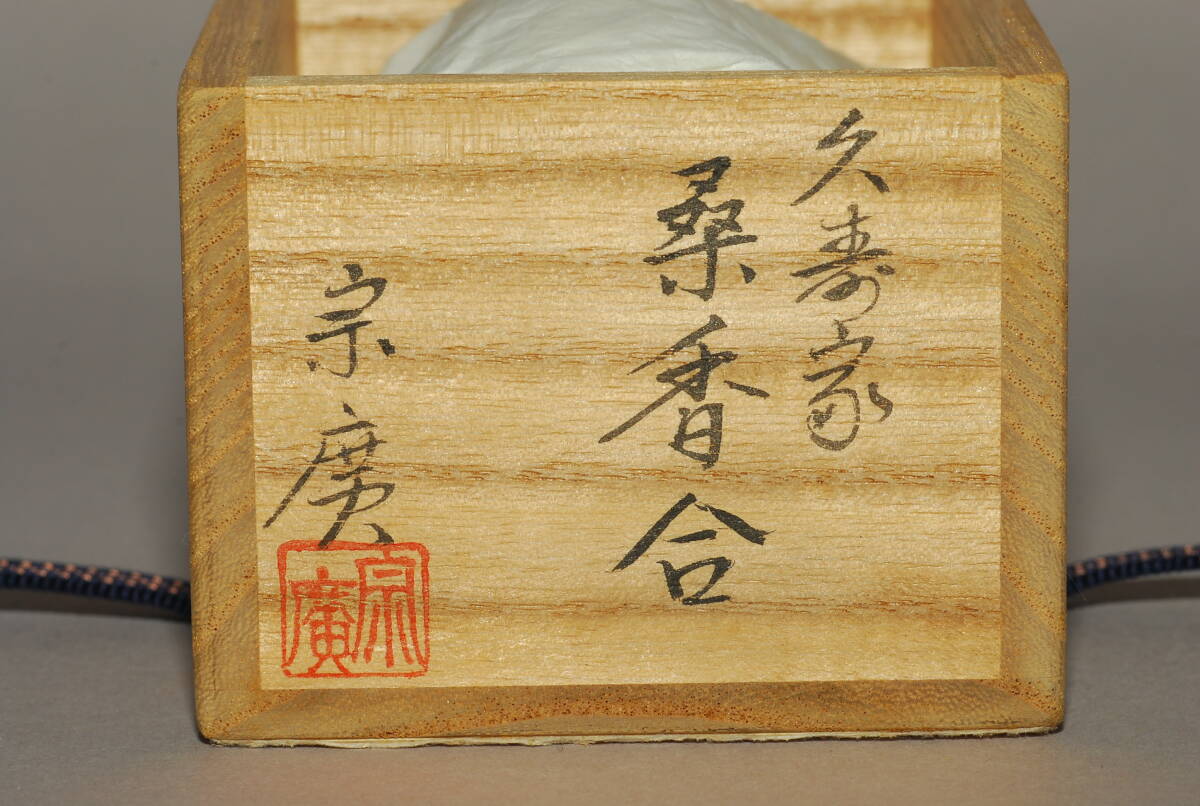 久寿家
桑香合
宗廣
宗廣